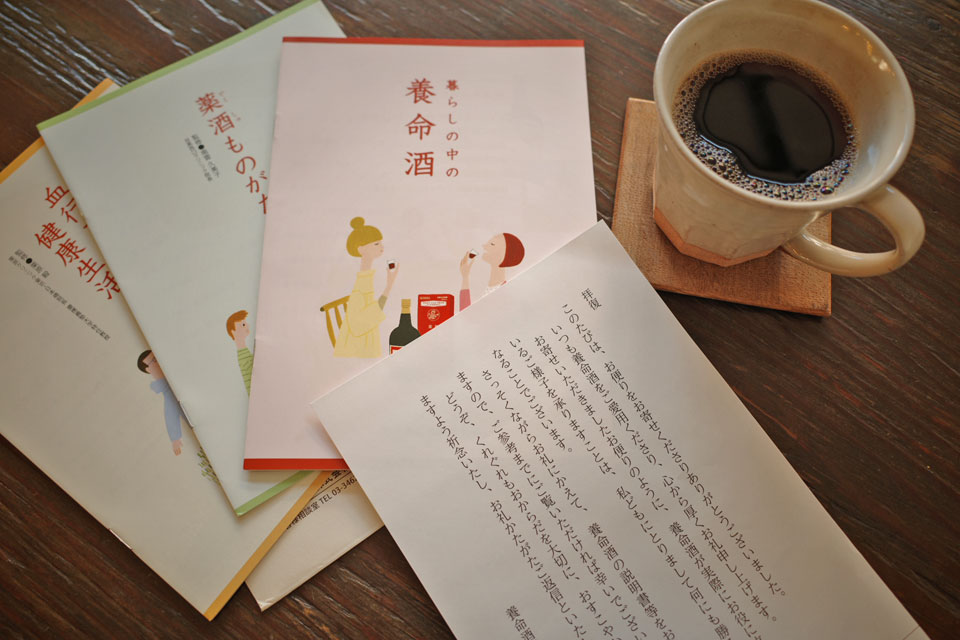 暮らしの中の
養命酒
薬酒ものがた
血行
健康生活
相談室 TEL 03-346
拝復
このたびは、お便りをお寄せくださりありがとうございました。
いつも養命酒をご愛用くださり、心から厚くお礼申し上げます。
お寄せいただきましたお便りのように、養命酒が実際にお役に
いるご様子を承りますことは、私どもにとりまして何にも勝
なることでございます。
さっそくながらお礼にかえて、養命酒の説明書等をお
ますので、ご参考までにご覧いただければ幸いでござい
どうぞ、くれぐれもおからだを大切に、おすこや
ますよう祈念いたし、お礼かたがたご返信といた
養命酒